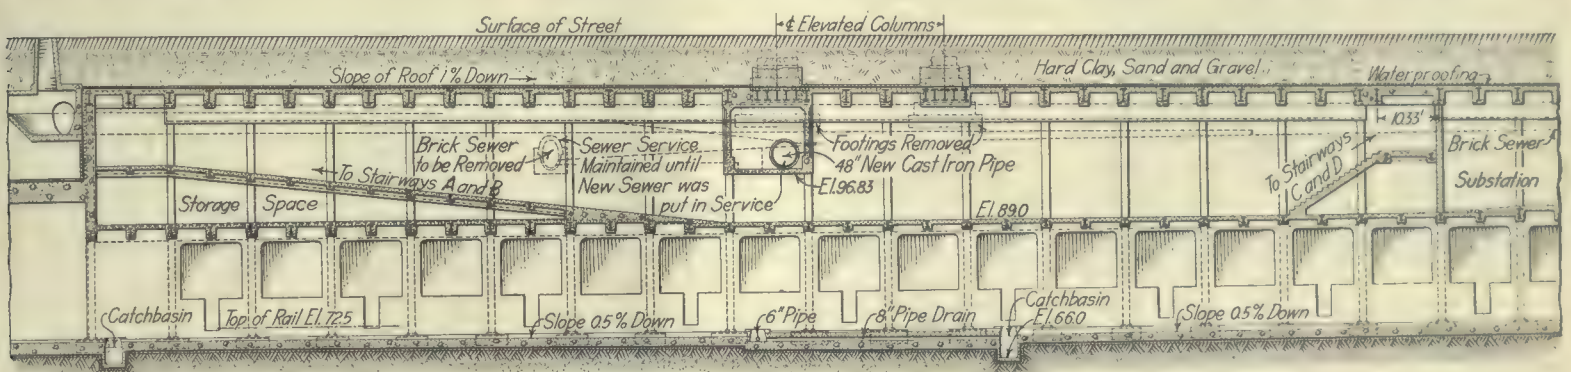 Surface of Street
℄ Elevated Columns
Slope of Roof 1% Down
Hard Clay, Sand and Gravel
Waterproofing
10.33'
Brick Sewer
to be Removed
Sewer Service
Maintained until
New Sewer was
put in Service
Footings Removed
48" New Cast Iron Pipe
El.96.83
To Stairways A and B
To Stairways
C and D
Brick Sewer
Substation
Storage Space
El.89.0
Catchbasin
Top of Rail El.72.5
Slope 0.5% Down
6" Pipe
8" Pipe Drain
Catchbasin
El.66.0
Slope 0.5% Down